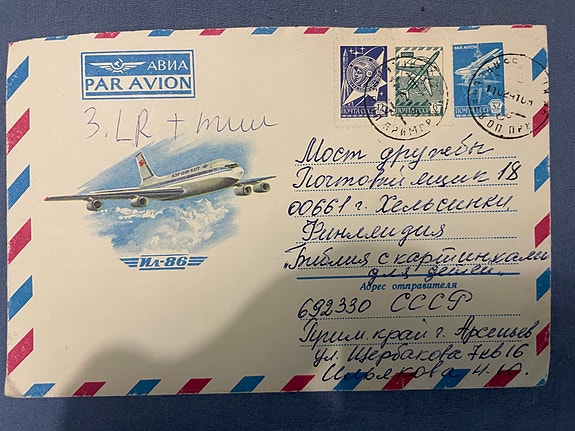 АВИА
PAR AVION
3. LR +
АЭРОФЛОТ
Ил-86
ПОЧТА СССР
ПОЧТА СССР
PAR AVION
ПОЧТА СССР 32
Мост дружбы
Почтовый ящик 18
00661 г. Хельсинки
Финляндия
"Библия с картинками
для детей"
Адрес отправителя
692330 СССР
Прим. край г. Арсеньев
ул. Щербакова 7 кв 16